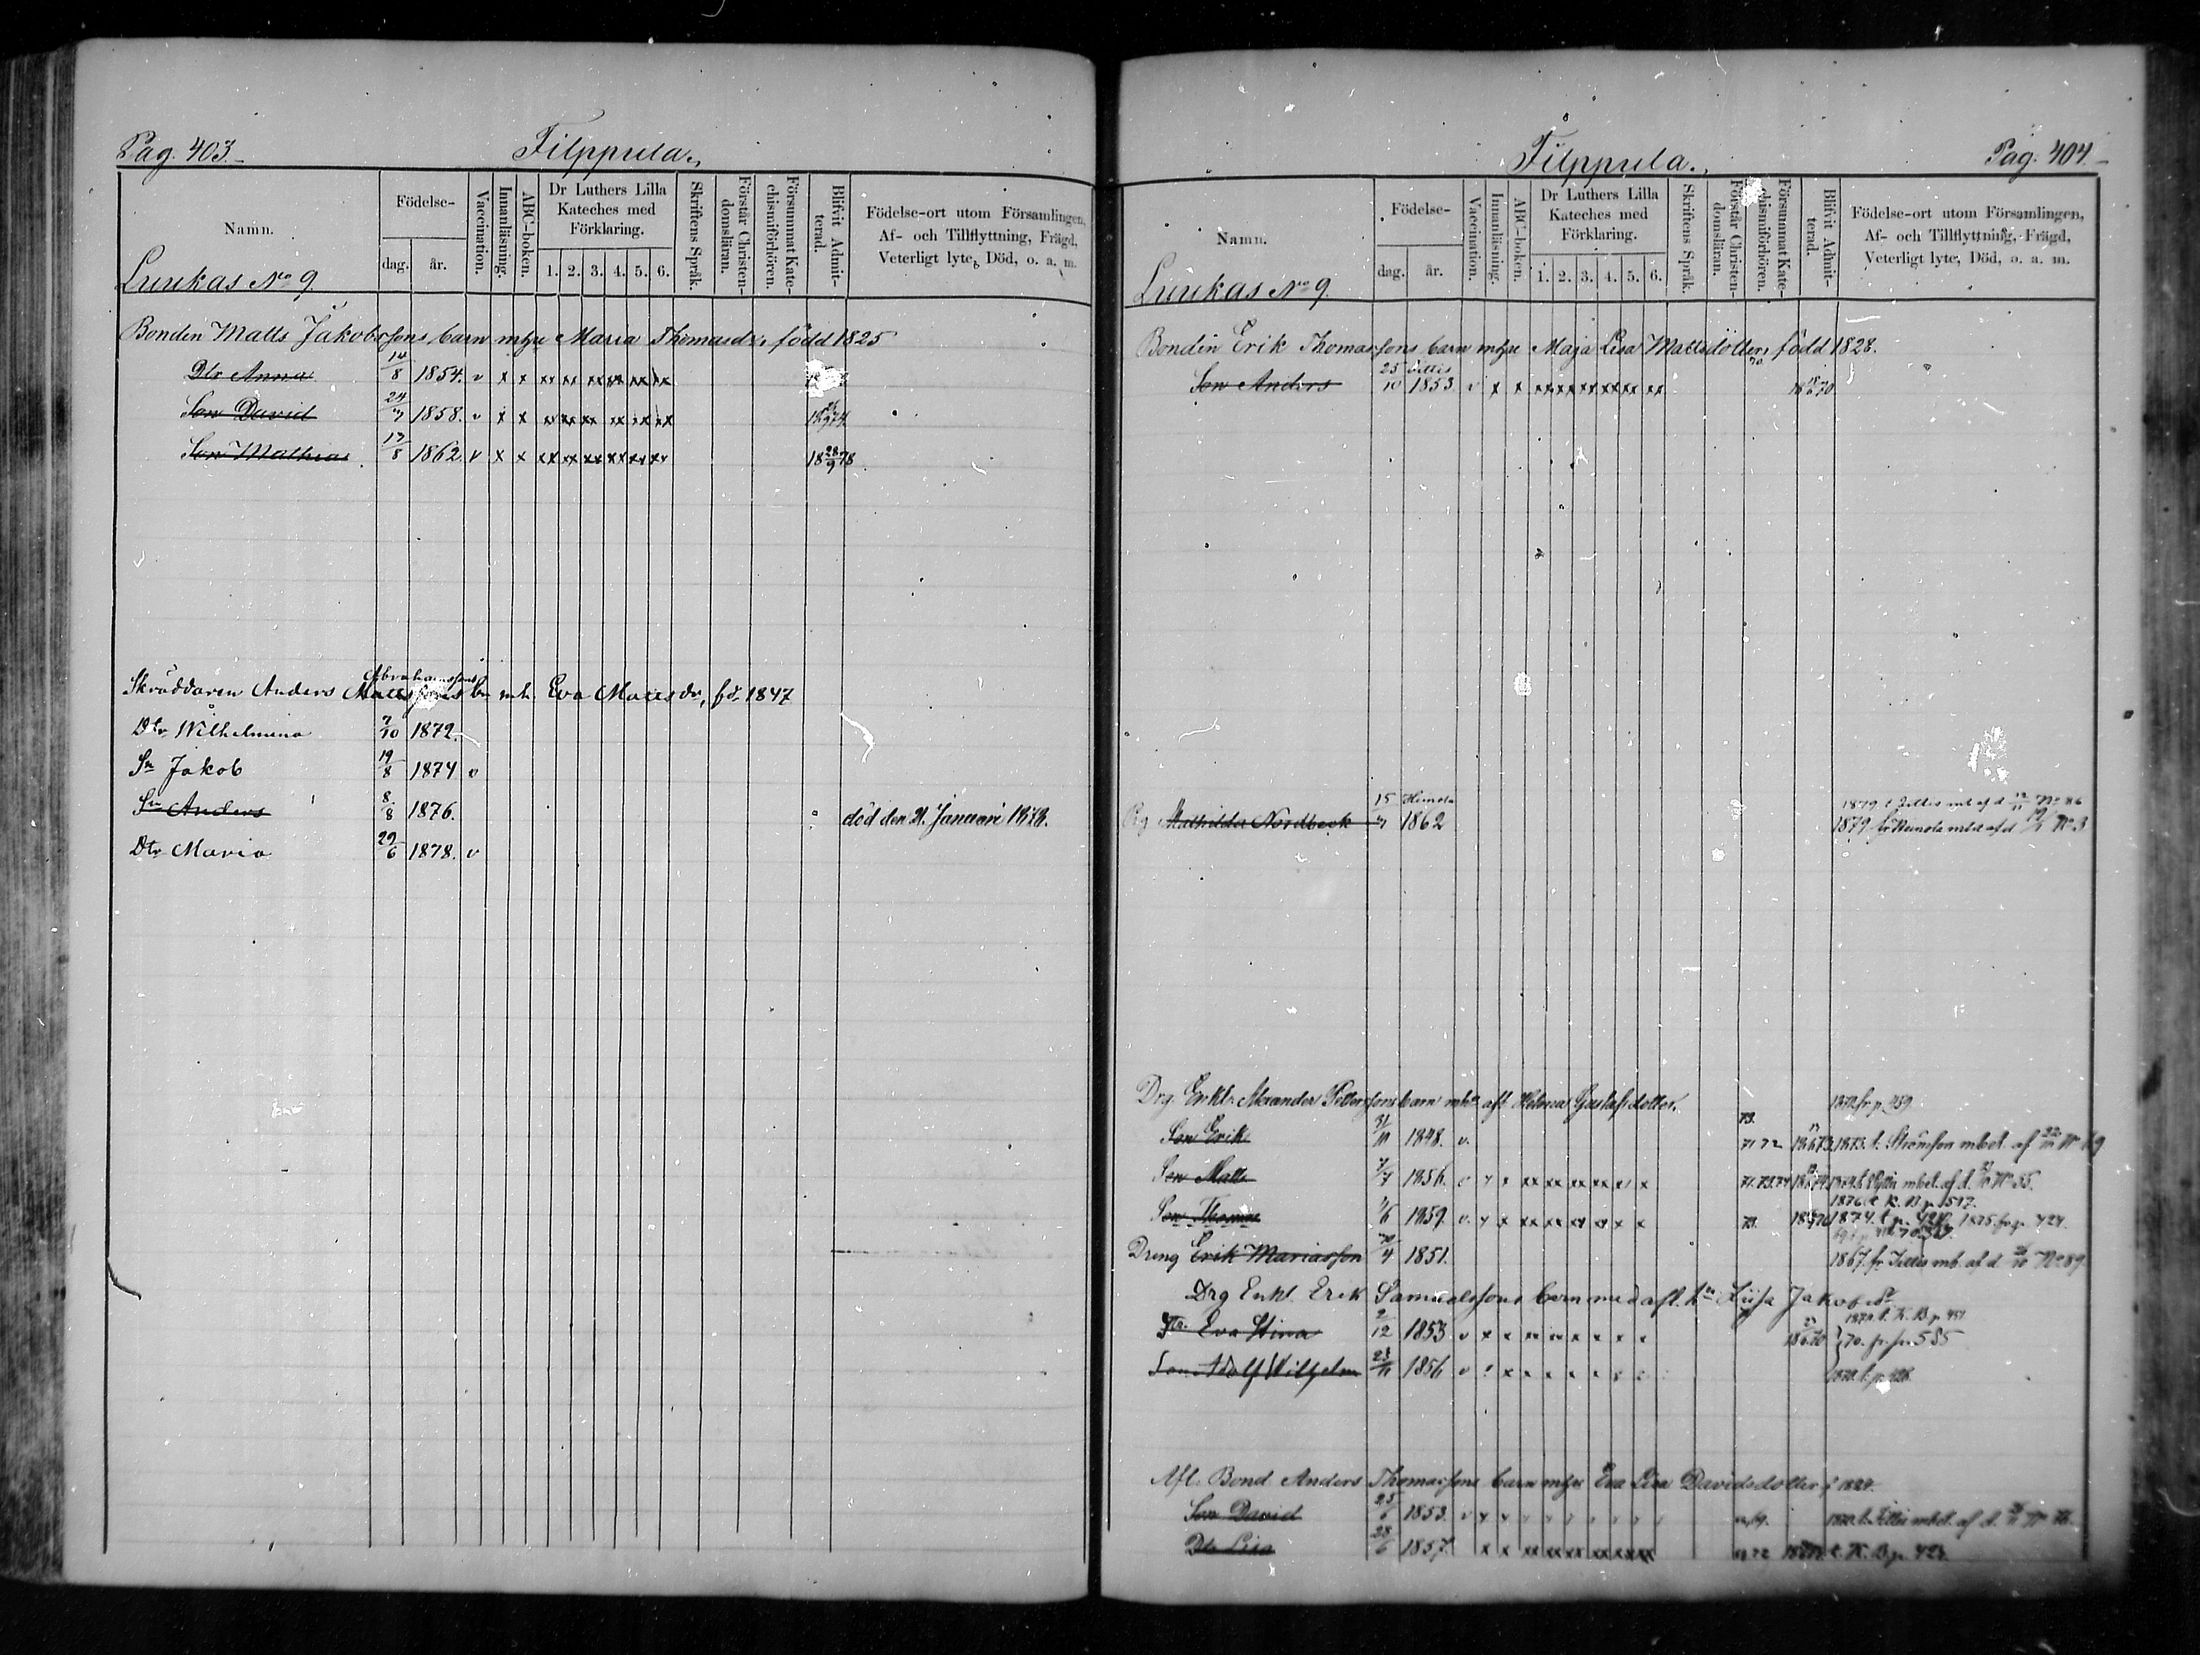 Pag. 403.
Filppula.
Namn.
Födelse-
dag.
år.
Vaccination.
Innanläsning.
ABC-boken.
Dr Luthers Lilla
Kateches med
Förklaring.
1. 2. 3. 4. 5. 6.
Skriftens Språk.
Förstår Christen-
domsläran.
Försummat Kate-
chismiförhören.
Blifvit Admit-
terad.
Födelse-ort utom Församlingen,
Af- och Tillflyttning, Frägd,
Veterligt lyte, Död, o. a. m.
Luukas No 9.
Bonden Matts Jakobssons barn mhu Maria Thomasdr. född 1825
Dtr Anna 14/8 1854. v x x xx xx xx xx xx xx
Son David 24/7 1858. v x x xx xx xx xx xx xx
Son Mathias 17/8 1862 v x x xx xx xx xx xx xx 18 28/9 78
Abrahamssons
Skräddaren Anders Mattssons bn mh. Eva Mattsdr, fd. 1847
Dtr Wilhelmina 7/10 1872.
Sn Jakob 19/8 1874 v
Sn Anders 8/8 1876. död den 21. Januari 1878.
Dtr Maria 29/6 1878. v
Pag. 404.
Filppula.
Namn.
Födelse-
dag.
år.
Vaccination.
Innanläsning.
ABC-boken.
Dr Luthers Lilla
Kateches med
Förklaring.
1. 2. 3. 4. 5. 6.
Skriftens Språk.
Förstår Christen-
domsläran.
Försummat Kate-
chismiförhören.
Blifvit Admit-
terad.
Födelse-ort utom Församlingen,
Af- och Tillflyttning, Frägd,
Veterligt lyte, Död, o. a. m.
Luukas No 9.
Bonden Erik Thomassons barn mhu Maja Lisa Mattsdotter, född 1828.
Son Anders 25/10 1853 v x x xx xx xx xx xx xx
Mathilda Nordbeck 15/7 1862
1879 t. Jittis mb af d No 86
1879 fr Heinola mbet af d No 3
Drg. Enkl. Alexander Pettersons barn mh afl Helena Gustafsdotter.
Son Erik 1848. v. 71 72 1873 t. Strömfors mbet. af
Son Matts 1856. v
Son Thomas 1859. v. 1876 t. K. B p. 517.
Dreng Erik Mariasson 1851. 1867 fr Jittis mb. af d. No 89
Drg Enkl. Erik Samuelssons barn med afl. Liisa Jakobsdr
Dtr. Eva Stina 2/12 1853 v 70. fr. p. 585
Son Adolf Wilhelm 23/11 1856 v
Afl. Bond. Anders Thomassons barn mhu Eva Lisa Davidsdotter f 1824.
Son David 25/6 1853. v
Dtr Lisa 28/6 1857. x x xx xx xx xx xx xx t. K. B p. 423